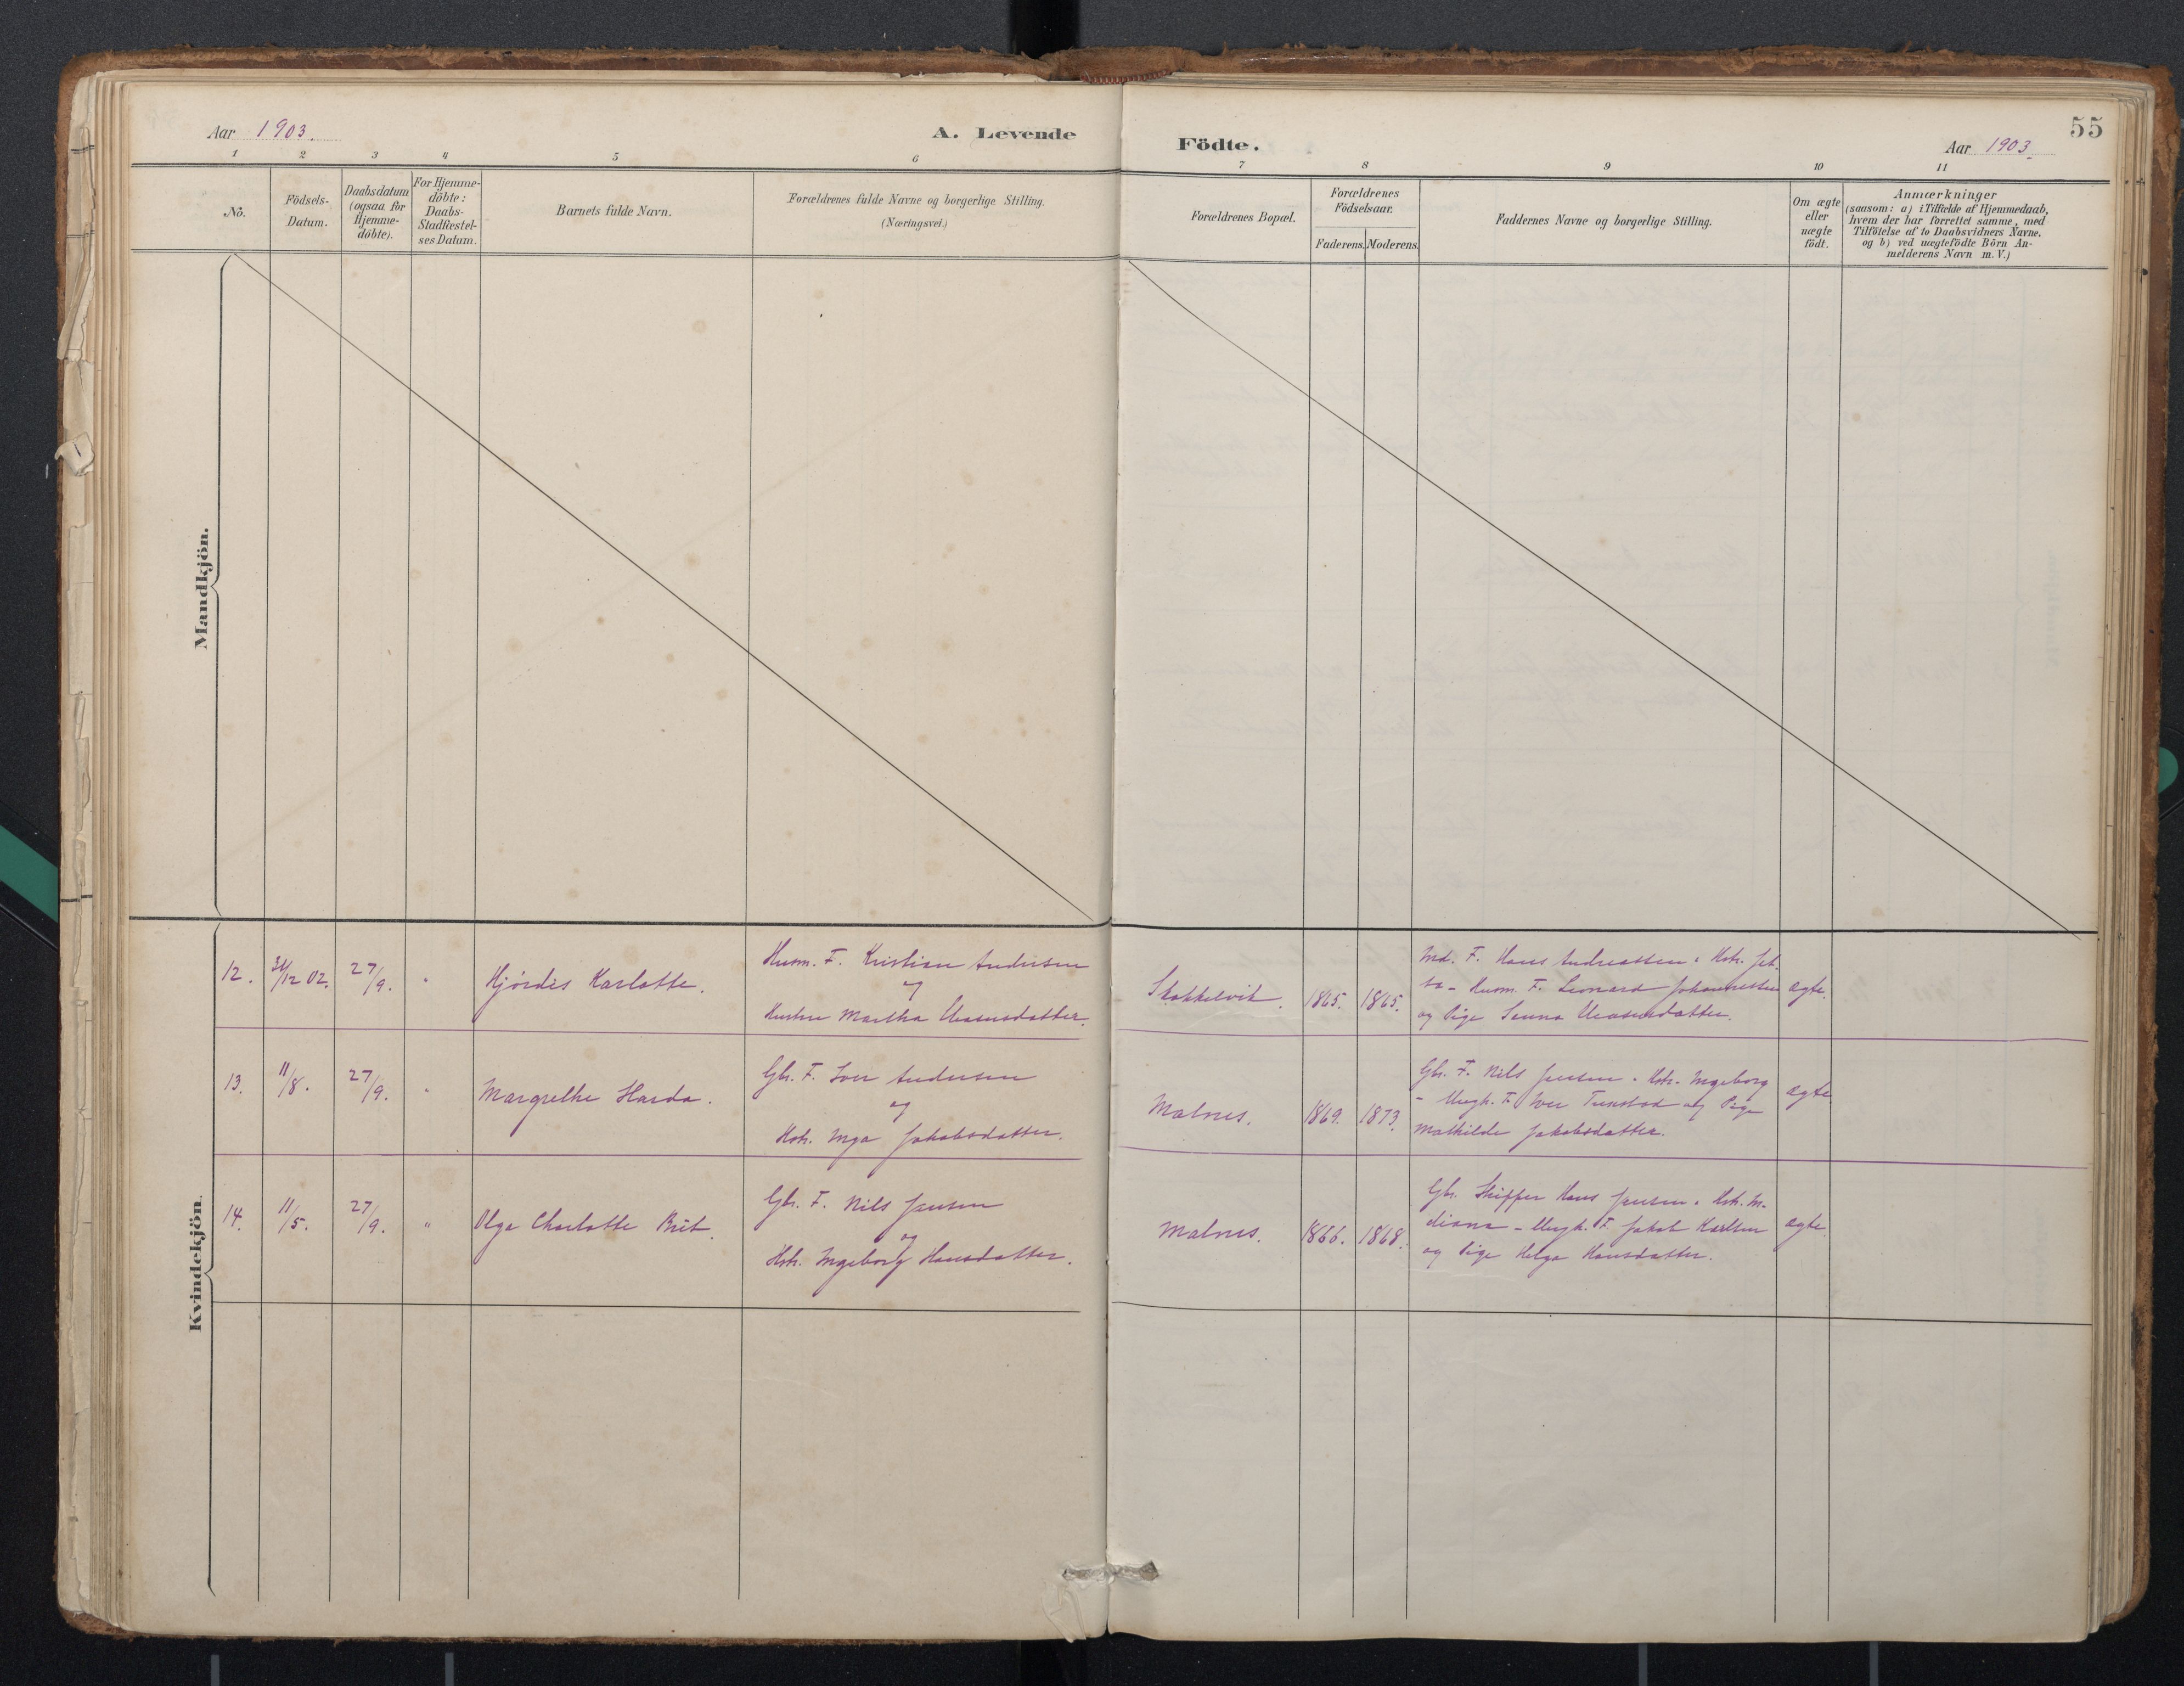 Aar 1903.
A. Levende
Födte.
Aar 1903.
55
1 2 3 4 5 6 7 8 9 10 11
No.
Födsels-
Datum.
Daabsdatum
(ogsaa for
Hjemme-
döbte).
For Hjemme-
döbte:
Daabs-
Stadfæstel-
ses Datum.
Barnets fulde Navn.
Forældrenes fulde Navne og borgerlige Stilling.
(Næringsvei.)
Forældrenes Bopæl.
Forældrenes
Födselsaar.
Faderens. Moderens.
Faddernes Navne og borgerlige Stilling.
Om ægte
eller
uægte
födt.
Anmærkninger
(saasom: a) i Tilfælde af Hjemmedaab,
hvem der har forrettet samme, med
Tilföielse af to Daabsvidners Navne,
og b) ved uægtefödte Börn An-
melderens Navn m. V.)
Mandkjön.
Kvindekjön.
12. 31/12 02. 27/9. " Hjördis Karlotte.
Husm. F. Kristian Andersen
og
Hustru Martha
1865. 1865.
Md. F. Hans Andreassen
Husm. F. Leonard Johannessen
og Pige
ægte.
13. 11/8. 27/9. " Margrethe Harda.
Gbr. F. Iver Andersen
og
Hstr. Inga Jakobsdatter.
Malnes. 1869. 1873.
Gbr. F. Nils Jensen. Hstr. Ingeborg
- Ungk. F. Iver Tunstad og Pige
Mathilde Jakobsdatter.
ægte
14. 11/5. 27/9. " Olga Charlotte Brit.
Gbr. F. Nils Jensen
og
Hstr. Ingeborg Hansdatter.
Malnes. 1866. 1868.
Gbr. Skipper Hans Jensen. Hstr. M.
diana - Ungk. F. Jakob Karlsen
og Pige Helga Hansdatter.
ægte.